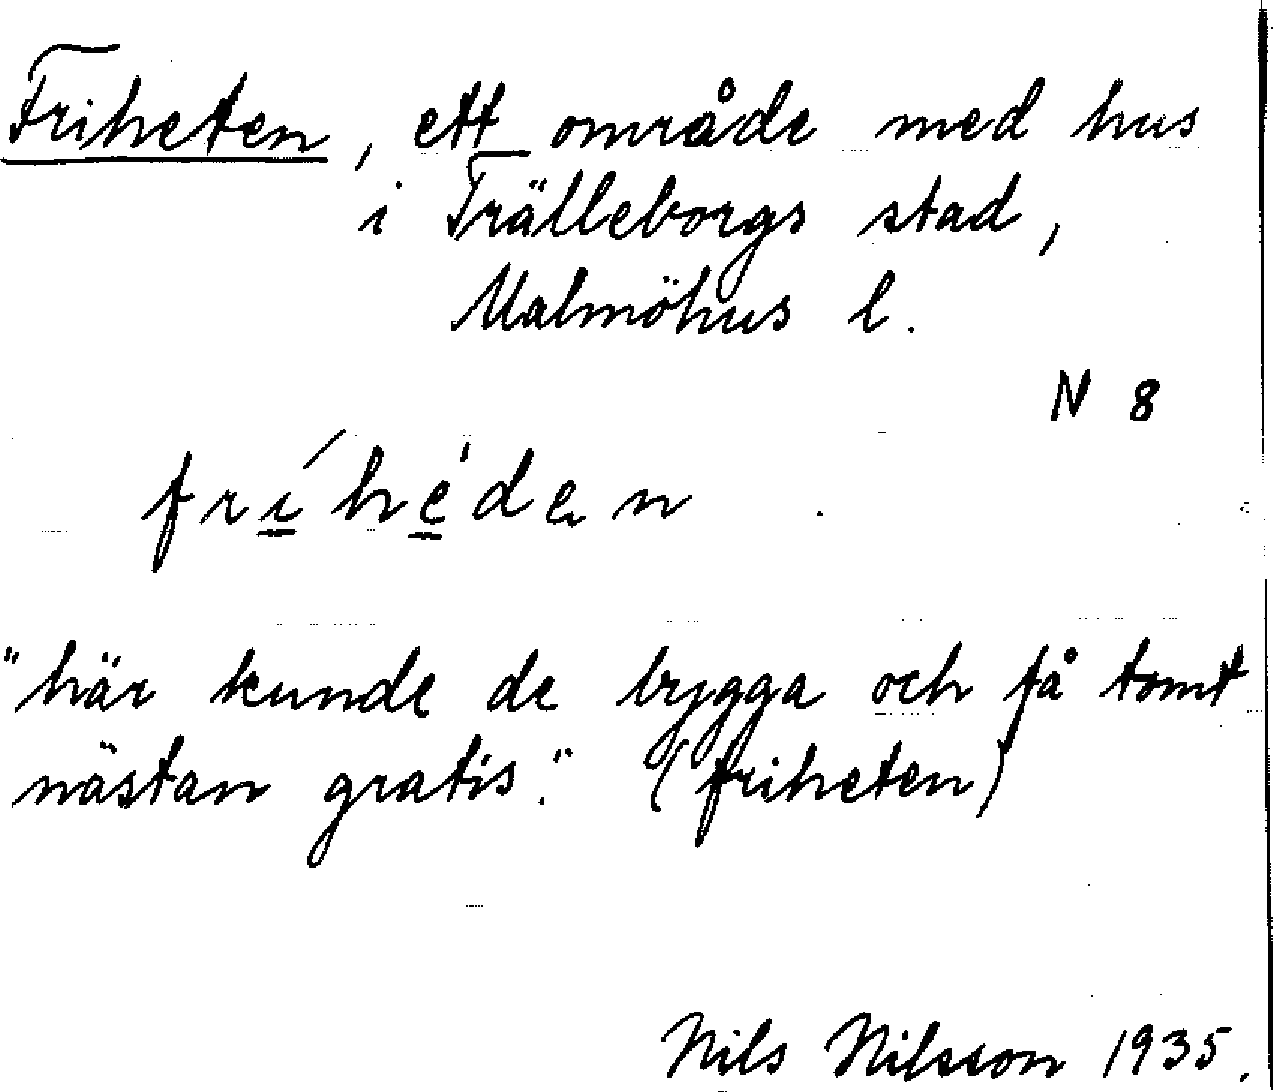 Friheten, ett område med hus
i Trälleborgs stad,
Malmöhus l.
N 8
fri̱´he̱'den
"här kunde de bygga och få tomt
nästan gratis." (friheten)
Nils Nilsson 1935.